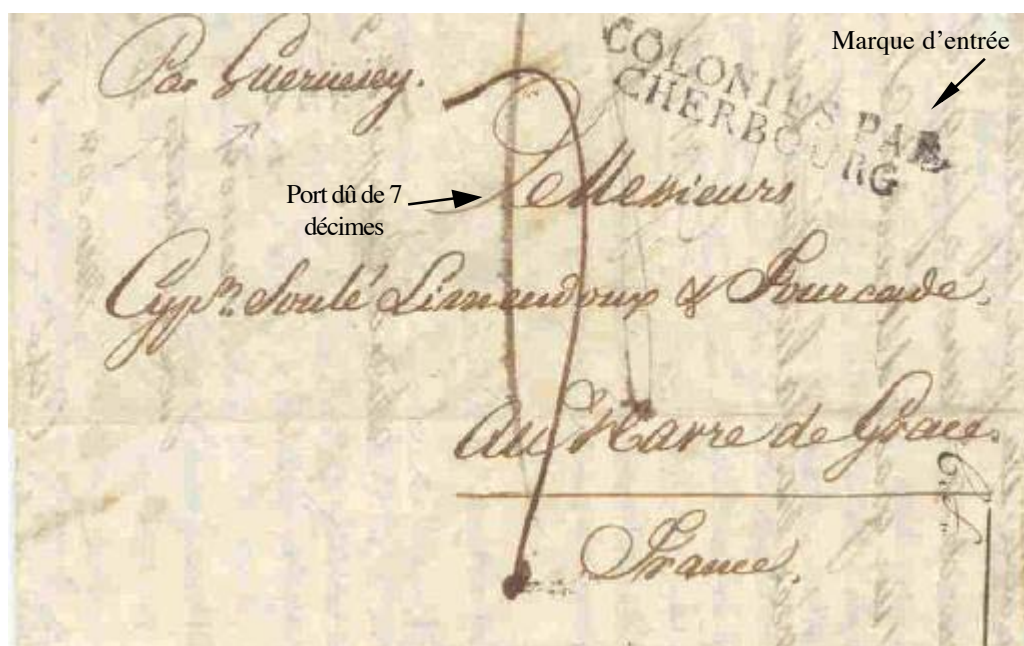 Par Guernesey.
COLONIES PAR
CHERBOURG
Marque d’entrée
Port dû de 7
décimes
Messieurs
Soulé Limendoux & Fourcade,
Au Havre de Grace.
France.